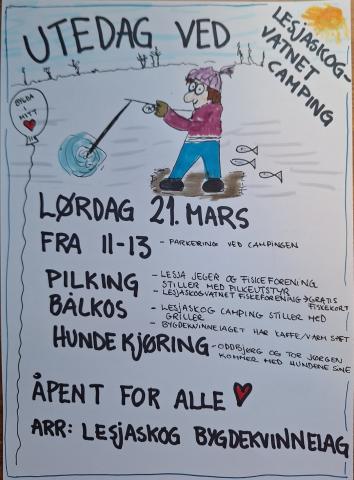 UTEDAG VED
LESJASKOG-
VATNET
CAMPING
BYGDA
MITT
LØRDAG 21. MARS
FRA 11-13 - PARKERING VED CAMPINGEN
PILKING - LESJA JEGER OG FISKEFORENING
STILLER MED PILKEUTSTYR
- LESJASKOGVATNET FISKEFORENING → GRATIS
FISKEKORT
BÅLKOS - LESJASKOG CAMPING STILLER MED
GRILLER
- BYGDEKVINNELAGET HAR KAFFE/VARM SAFT
HUNDEKJØRING - ODDBJØRG OG TOR JØRGEN
KOMMER MED HUNDENE SINE
ÅPENT FOR ALLE
ARR: LESJASKOG BYGDEKVINNELAG